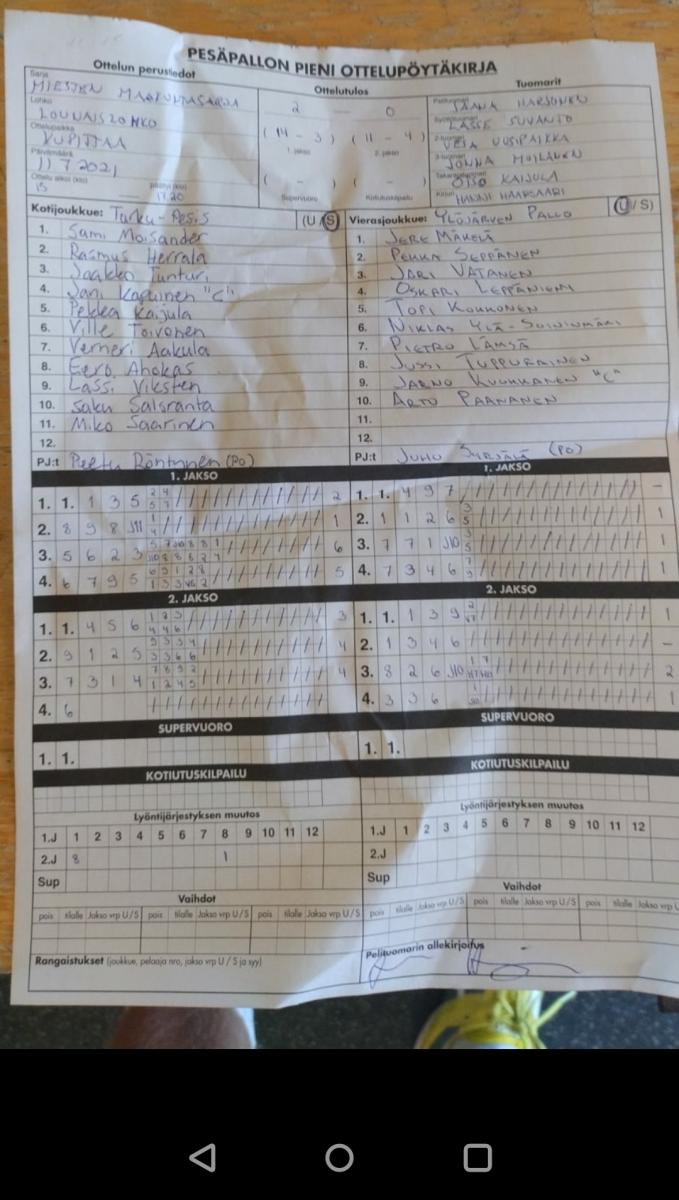 PESÄPALLON PIENI OTTELUPÖYTÄKIRJA
Ottelun perustiedot
Ottelutulos
Tuomarit
Sarja
MIESTEN MAAKUNTASARJA
Lohko
LOUNAISLOHKO
Ottelupaikka
KUPITTAA
Päivämäärä
11 7 2021
Ottelu alkoi (klo) päättyi (klo)
15 17.20
2 - 0
(14 - 3) (11 - 4)
1. jakso 2. jakso
( - ) ( - )
Supervuoro Kotiutuskilpailu
Pelituomari
JAANA HARJUNEN
Syöttötuomari
LASSE SUVANTO
2-tuomari
VEIJA UUSIPAIKKA
3-tuomari
JONNA MOILANEN
Takarajatuomari
OTSO KAIJULA
Kirjuri
HANNI HAAKSAARI
Kotijoukkue: Turku-Pesis (U / S)
1. Sami Moisander
2. Rasmus Herrala
3. Jaakko Tunturi
4. Jani Karuinen "C"
5. Pekka Kaijula
6. Ville Toivonen
7. Verneri Aakula
8. Eero Ahokas
9. Lassi Viksten
10. Saku Salsranta
11. Miko Saarinen
12.
PJ:t Peetu Röntynen (PO)
Vierasjoukkue: YLÖJÄRVEN PALLO (U / S)
1. JERE MÄKELÄ
2. PEKKA SEPPÄNEN
3. JARI VATANEN
4. OSKARI LEPPÄNIEMI
5. TOPI KOKKONEN
6. NIKLAS YLÄ-SOININMÄKI
7. PIETRO LÄMSÄ
8. JUSSI TUPPURAINEN
9. JARNO KUUKKANEN "C"
10. ARTO PAANANEN
11.
12.
PJ:t JUHO SYRJÄLÄ (PO)
1. JAKSO
1. 1. 1 3 5 2
2. 8 9 8 J11 1
3. 5 6 2 3 6
4. 6 7 9 5 5
1. JAKSO
1. 1. 4 9 7 -
2. 1 1 2 6 1
3. 7 7 1 J10 1
4. 7 3 4 6 1
2. JAKSO
1. 1. 4 5 6 3
2. 9 1 2 5 4
3. 7 3 1 4 4
4. 6
2. JAKSO
1. 1. 1 3 9 1
2. 1 3 4 6 -
3. 8 2 6 J10 2
4. 3 3 6 1
SUPERVUORO
1. 1.
SUPERVUORO
1. 1.
KOTIUTUSKILPAILU
KOTIUTUSKILPAILU
Lyöntijärjestyksen muutos
1.J 1 2 3 4 5 6 7 8 9 10 11 12
2.J 8 1
Sup
Lyöntijärjestyksen muutos
1.J 1 2 3 4 5 6 7 8 9 10 11 12
2.J
Sup
Vaihdot
pois tilalle Jakso vrp U / S pois tilalle Jakso vrp U / S pois tilalle Jakso vrp U / S
Vaihdot
pois tilalle Jakso vrp U / S pois tilalle Jakso vrp U / S pois tilalle Jakso vrp U
Rangaistukset (joukkue, pelaaja nro, jakso vrp U / S ja syy)
Pelituomarin allekirjoitus